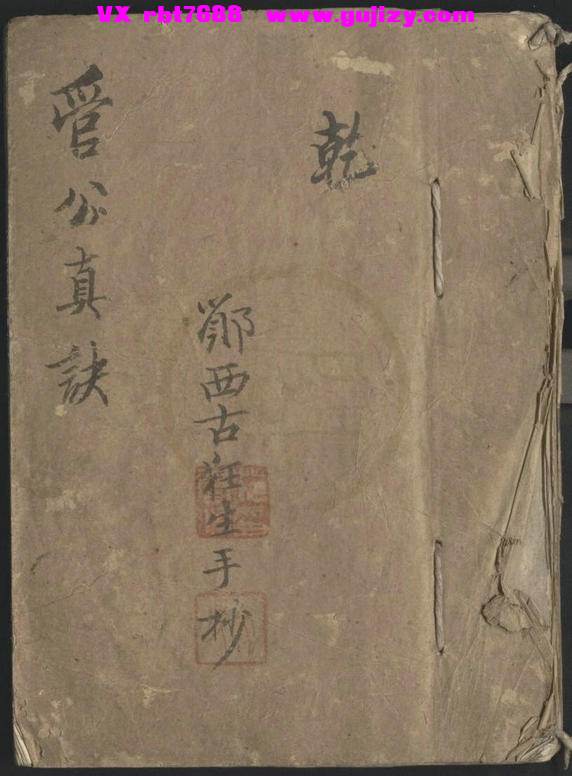 VX rbt7688 www.gujizy.com
乾
鄖西古狂生手抄
管公真訣